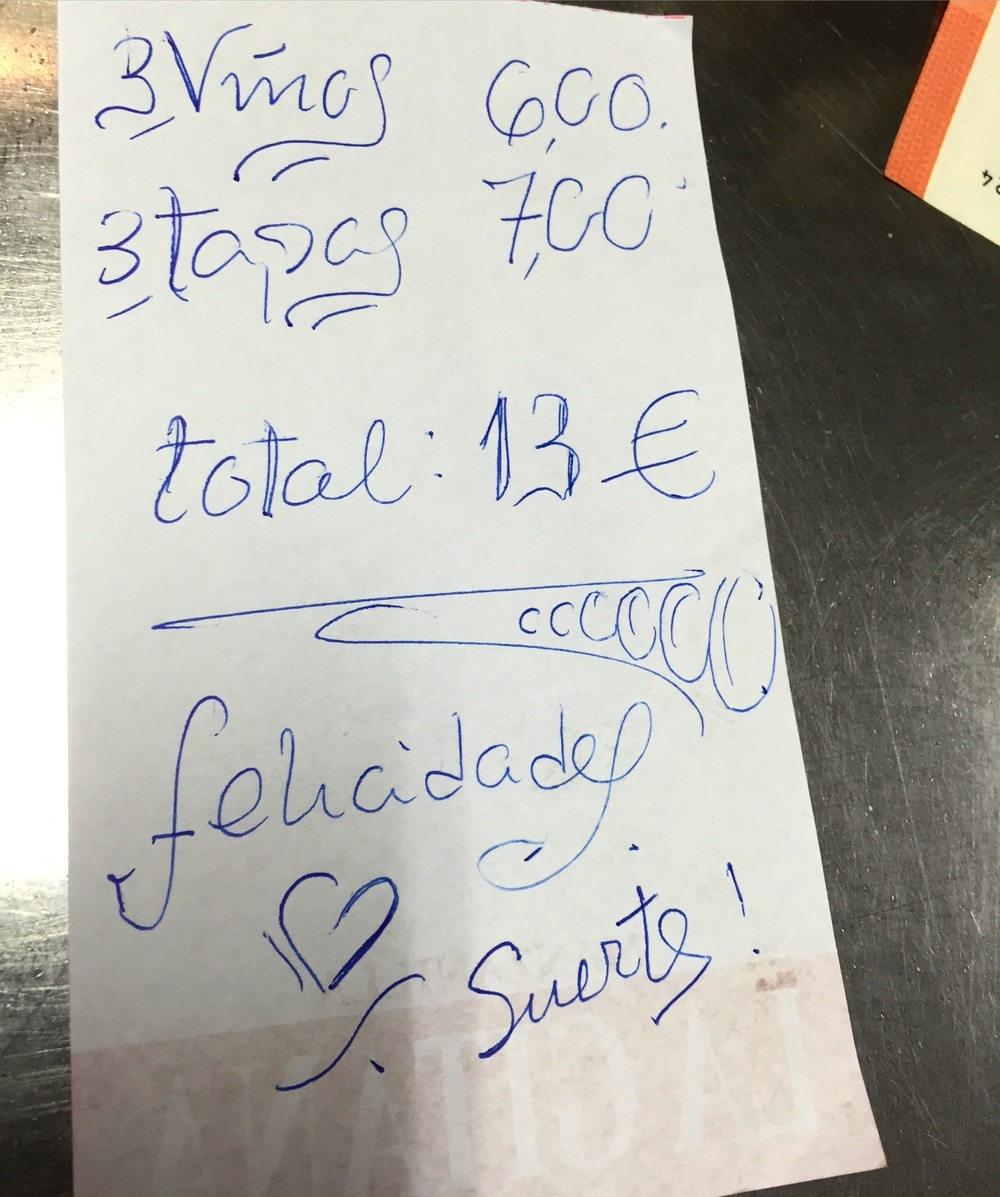 3 Vinos 6,00.
3 tapas 7,00
total: 13 €
felicidades
Suerte!
LA GITANA